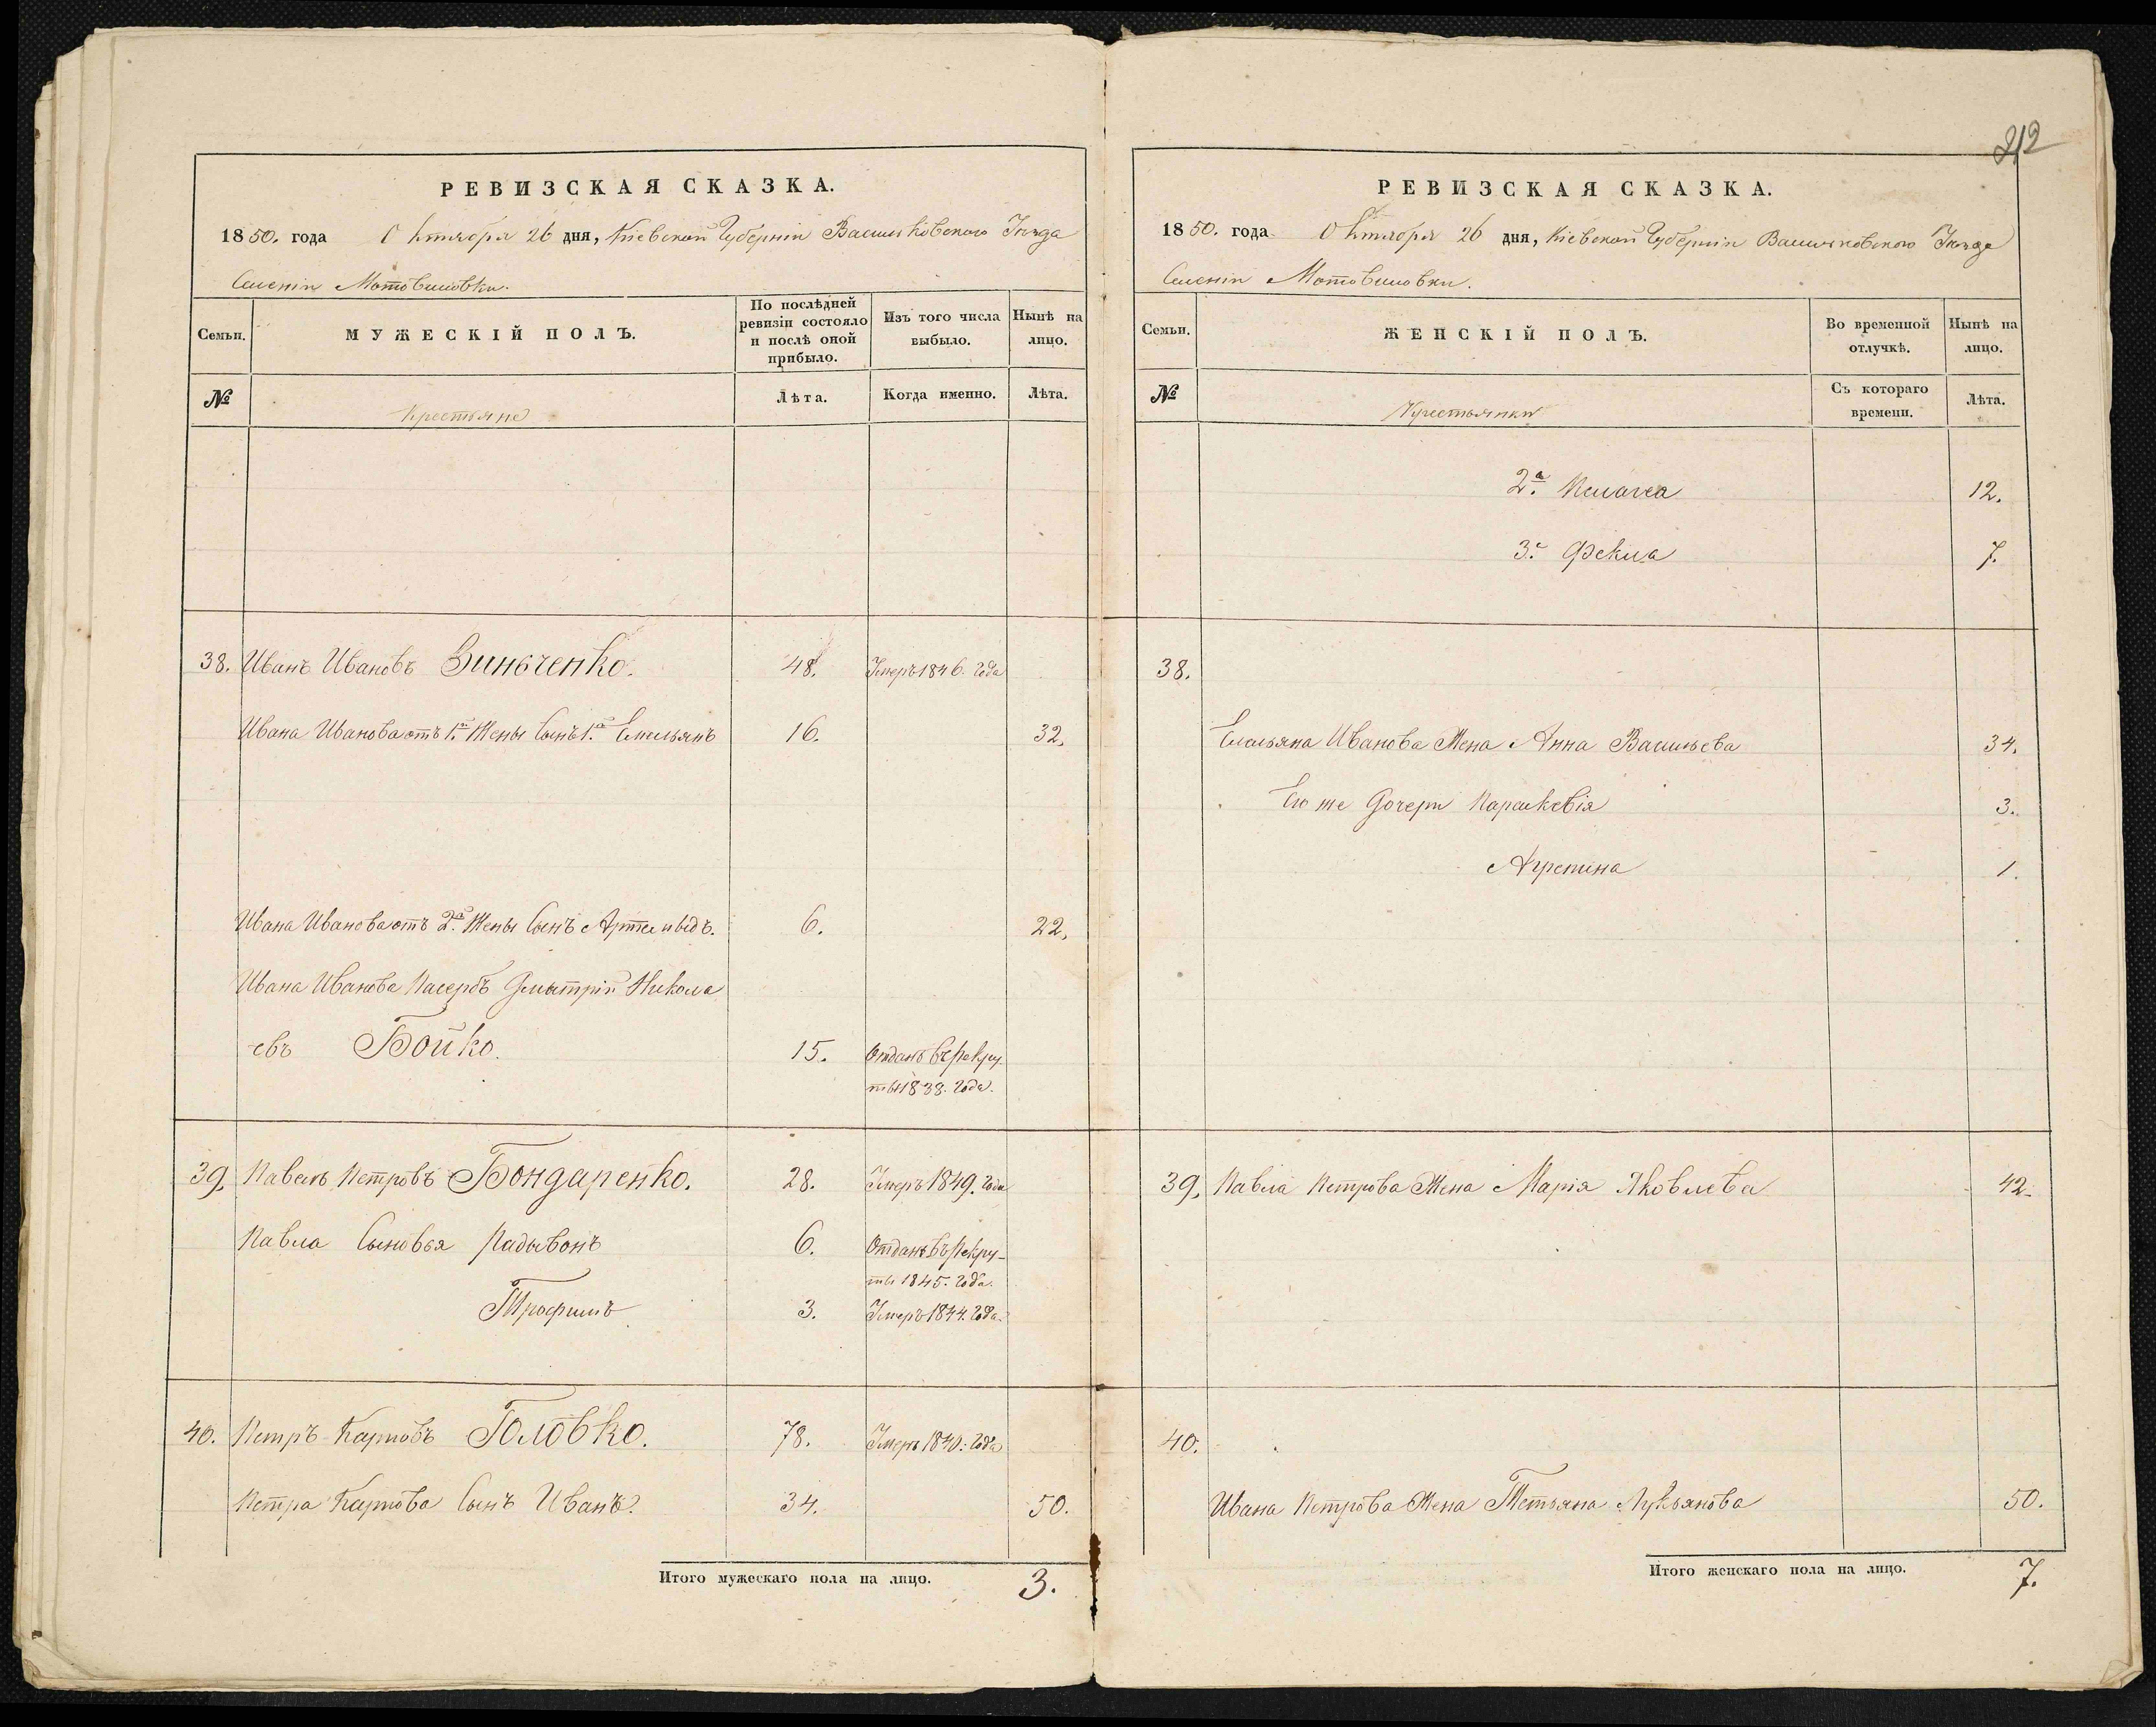 РЕВИЗСКАЯ СКАЗКА.
1850. года Октября 26 дня, Кіевской Губерніи Васильковскаго Уѣзда
Селенія Мотовиловки.
Семьи.
МУЖЕСКІЙ ПОЛЪ.
По послѣдней ревизіи состояло и послѣ оной прибыло.
Изъ того числа выбыло.
Нынѣ на лицо.
№
Крестьяне
Лѣта.
Когда именно.
Лѣта.
38. Иванъ Ивановъ Зинченко. 48. Умеръ 1846. года
Ивана Иванова отъ 1й Жены Сынъ 1й Емельянъ 16. 32.
Ивана Иванова отъ 2й Жены Сынъ 6. 22.
Ивана Иванова Пасербъ Дмытрій Никола
евъ Бойко. 15. Отданъ въ Рекру
ты 1838. года.
39. Павелъ Петровъ Бондаренко. 28. Умеръ 1849. года
Павла Сыновья Радывонъ 6. Отданъ въ Рекру-
ты 1845. года.
Трофимъ 3. Умеръ 1844. года.
40. Петръ Карповъ Головко. 78. Умеръ 1840. года
Петра Карпова Сынъ Иванъ. 34. 50.
Итого мужескаго пола на лицо. 3.
212
РЕВИЗСКАЯ СКАЗКА.
1850. года Октября 26 дня, Кіевской Губерніи Васильковскаго Уѣзда
Селенія Мотовиловки.
Семьи.
ЖЕНСКІЙ ПОЛЪ.
Во временной отлучкѣ.
Нынѣ на лицо.
№
Крестьянки
Съ котораго времени.
Лѣта.
2а. Пелагея 12.
3. Фекла 7.
38.
Емельяна Иванова Жена Анна Васильева 34.
Его же Дочери Параскевія 3.
Агрепина 1.
39. Павла Петрова Жена Марія Яковлева 42.
40.
Ивана Петрова Жена Тетьяна Лукьянова 50.
Итого женскаго пола на лицо. 7.